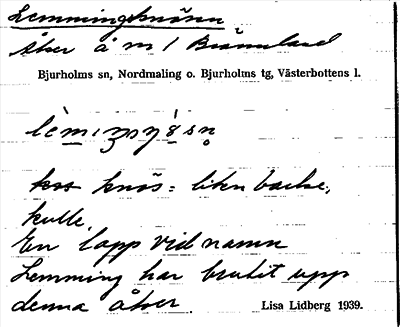 Lemmingsknösen
åker å nr 1 Brännland
Bjurholms sn, Nordmaling o. Bjurholms tg, Västerbottens l.
knös = liten backe,
kulle.
En lapp vid namn
Lemming har brutit upp
denna åker.
Lisa Lidberg 1939.